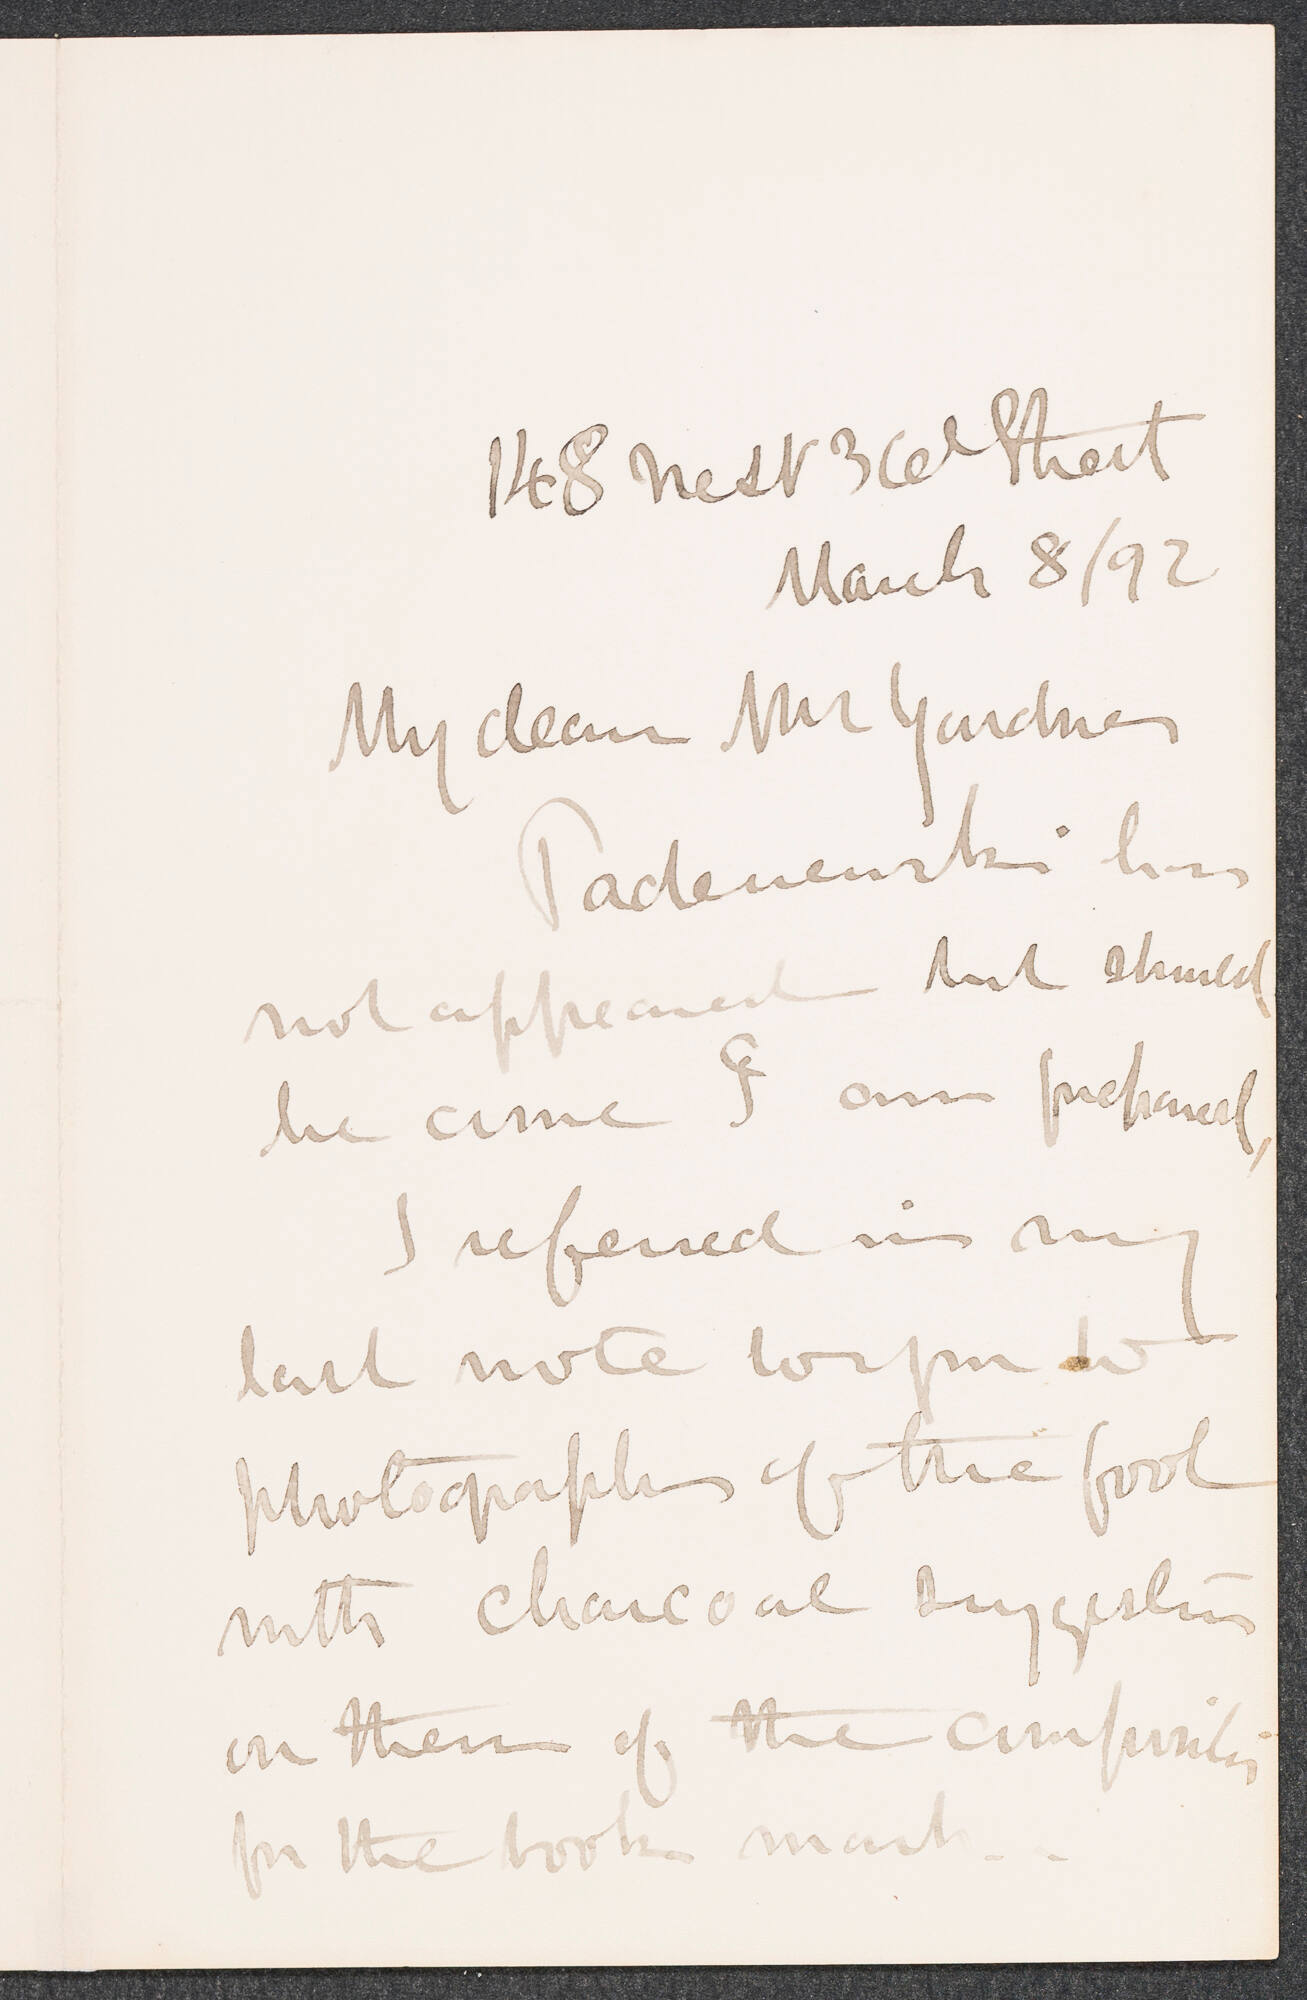 148 West 36th Street
March 8/92
My dear Mr Gardner
Paderewski has
not appeared but should
he come I am prepared,
I referred in my
last note to you to
photographs of the pool
with charcoal suggestions
on them of the composition
for the book mark..